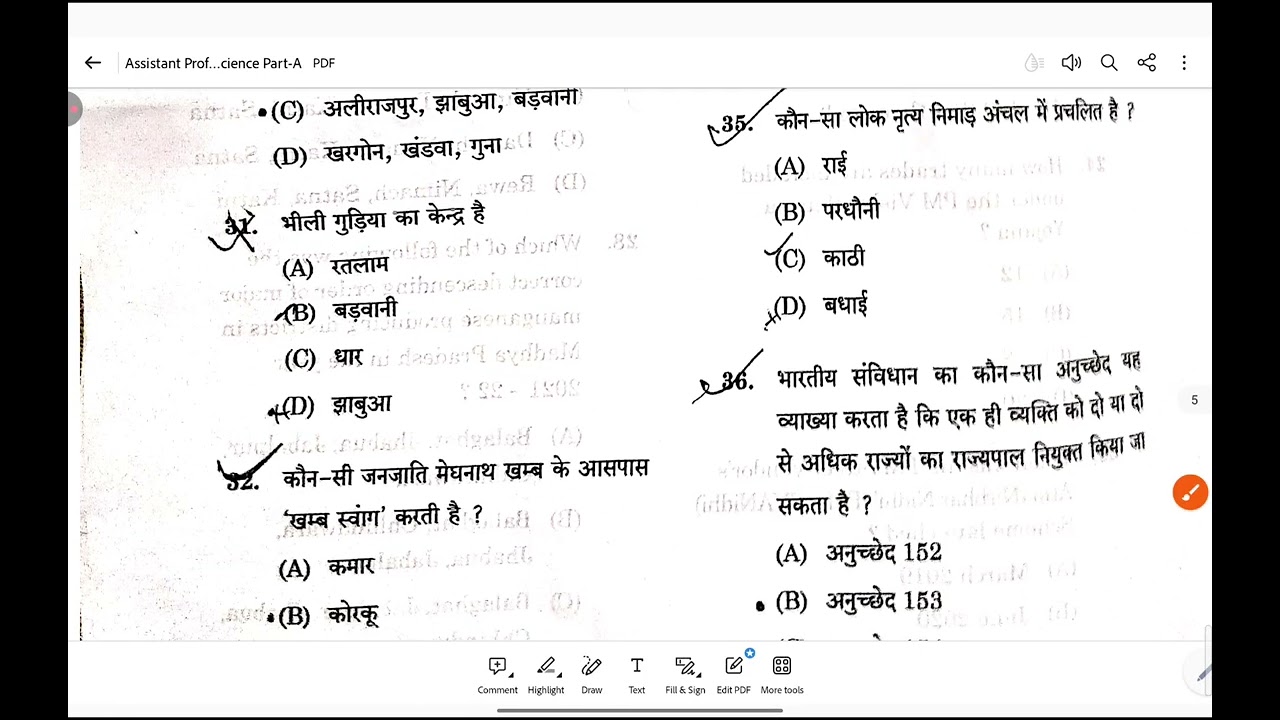 Assistant Prof...cience Part-A PDF
(C) अलीराजपुर, झाबुआ, बड़वानी
(D) खरगोन, खंडवा, गुना
31. भीली गुड़िया का केन्द्र है
(A) रतलाम
(B) बड़वानी
(C) धार
(D) झाबुआ
32. कौन-सी जनजाति मेघनाथ खम्ब के आसपास
‘खम्ब स्वांग’ करती है ?
(A) कमार
(B) कोरकू
35. कौन-सा लोक नृत्य निमाड़ अंचल में प्रचलित है ?
(A) राई
(B) परधौनी
(C) काठी
(D) बधाई
36. भारतीय संविधान का कौन-सा अनुच्छेद यह
व्याख्या करता है कि एक ही व्यक्ति को दो या दो
से अधिक राज्यों का राज्यपाल नियुक्त किया जा
सकता है ?
(A) अनुच्छेद 152
(B) अनुच्छेद 153
5
Comment Highlight Draw Text Fill & Sign Edit PDF More tools